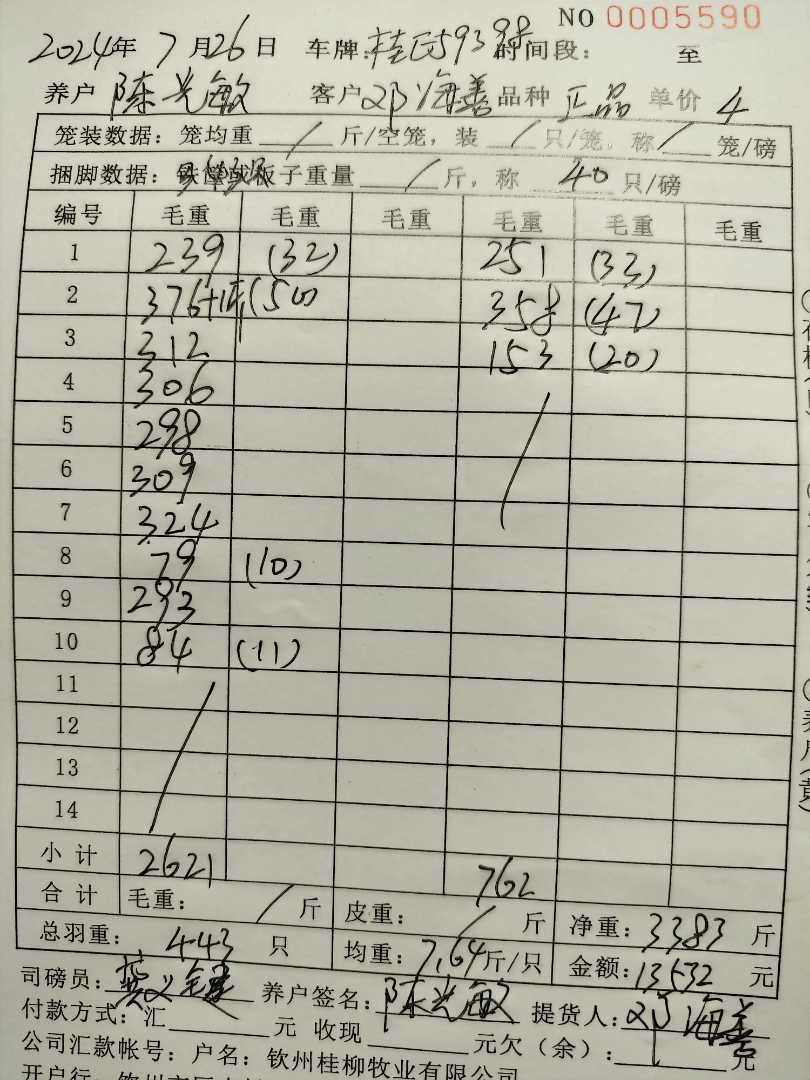 NO 0005590
2024年 7月26日 车牌: 时间段: 至
养户 陈光敏 客户 邓海善 品种 正品 单价 4
笼装数据: 笼均重 / 斤/空笼, 装 / 只/笼, 称 / 笼/磅
捆脚数据: 板子重量 / 斤, 称 40 只/磅
编号 毛重 毛重 毛重 毛重 毛重 毛重
1 239 (32) 251 (33)
2 (50) 358 (47)
3 312 153 (20)
4 306 /
5 298
6 309
7 324
8 79 (10)
9 293
10 84 (11)
11 /
12
13
14
小计 2621 762
合计 毛重: / 斤 皮重: / 斤 净重: 3383 斤
总羽重: 443 只 均重: 7.64 斤/只 金额: 13532 元
司磅员: 养户签名: 陈光敏 提货人: 邓海善
付款方式: 汇 元 收现 元欠(余): 元
公司汇款帐号: 户名: 钦州桂柳牧业有限公司
开户行